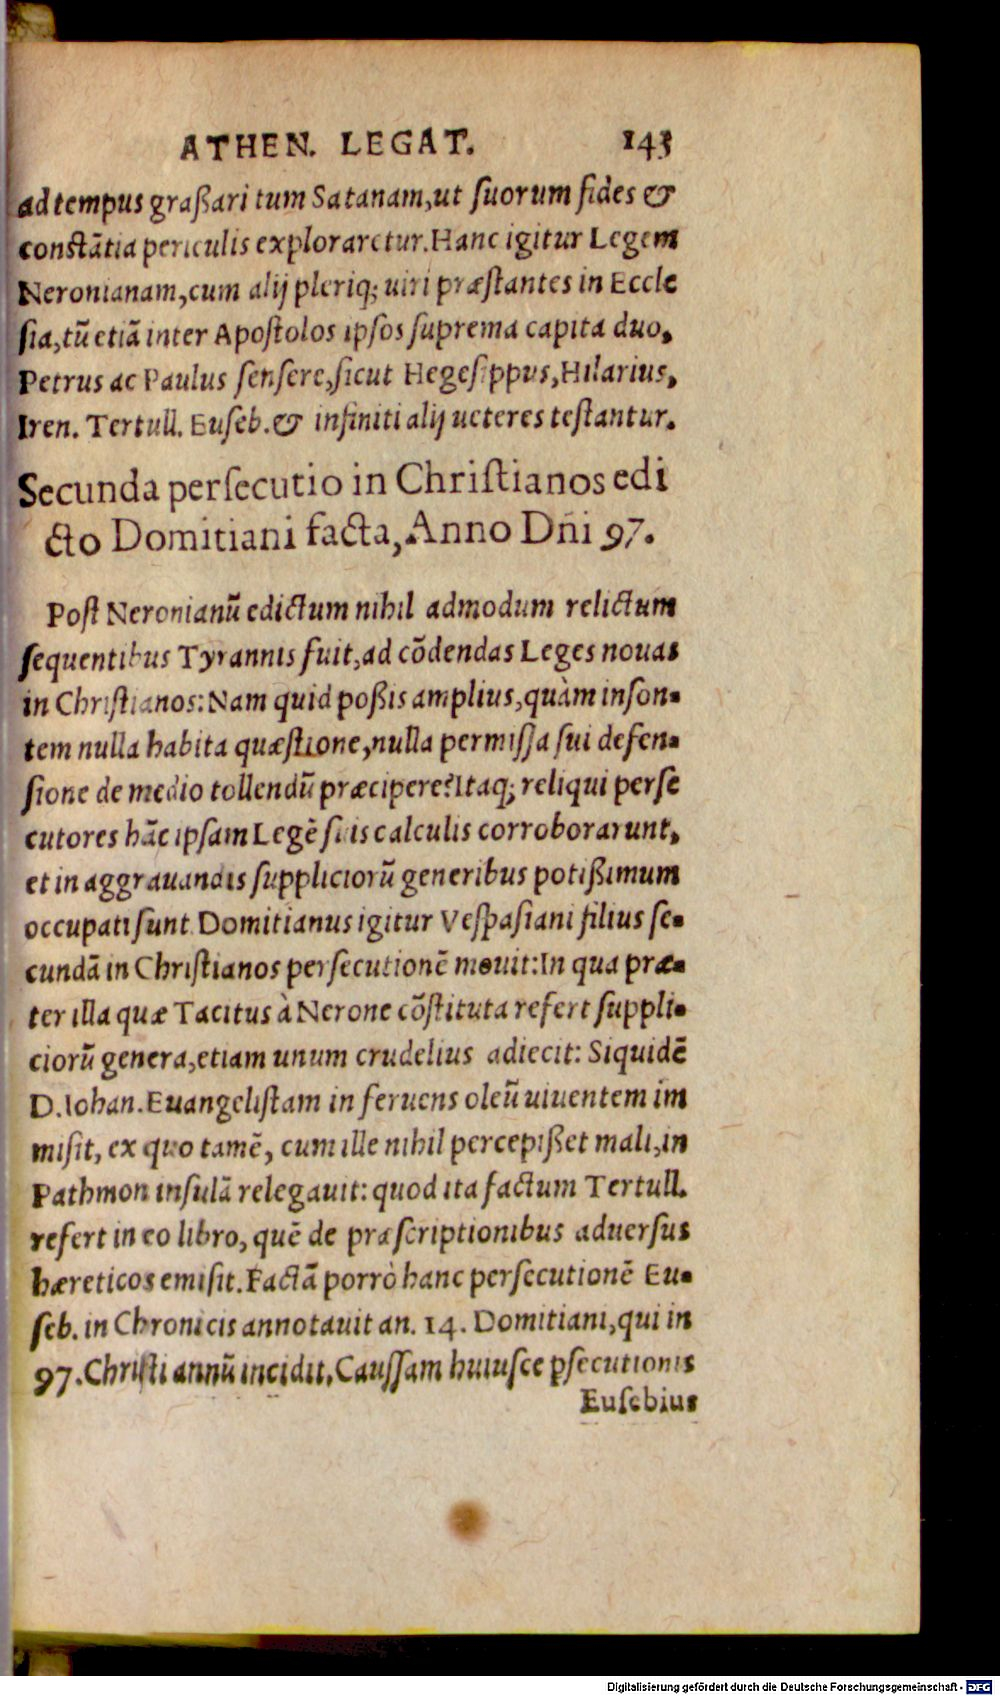 ATHEN. LEGAT. 143
ad tempus graßari tum Satanam,ut ſuorum fides &
conſtãtia periculis exploraretur.Hanc igitur Legem
Neronianam,cum alij pleriq; uiri præſtantes in Eccle
ſia,tũ etiã inter Apoſtolos ipſos ſuprema capita duo,
Petrus ac Paulus ſenſere,ſicut Hegeſippus,Hilarius,
Iren. Tertull. Euſeb.& infiniti alij ueteres teſtantur.
Secunda perſecutio in Chriſtianos edi
cto Domitiani facta,Anno Dñi 97.
Poſt Neronianũ edictum nihil admodum relictum
ſequentibus Tyrannis fuit,ad cõdendas Leges nouas
in Chriſtianos:Nam quid poßis amplius,quàm inſon-
tem nulla habita quæſtione,nulla permiſſa ſui defen-
ſione de medio tollendũ præcipere?Itaq; reliqui perſe
cutores hãc ipſam Legẽ ſuis calculis corroborarunt,
et in aggrauandis ſuppliciorũ generibus potißimum
occupati ſunt Domitianus igitur Veſpaſiani filius ſe-
cundã in Chriſtianos perſecutionẽ mouit:In qua præ-
ter illa quæ Tacitus à Nerone cõſtituta refert ſuppli-
ciorũ genera,etiam unum crudelius adiecit: Siquidẽ
D.Iohan.Euangeliſtam in feruens oleũ uiuentem im
miſit, ex quo tamẽ, cum ille nihil percepißet mali,in
Pathmon inſulã relegauit: quod ita factum Tertull.
refert in eo libro, quẽ de præſcriptionibus aduerſus
hæreticos emiſit.Factã porrò hanc perſecutionẽ Eu-
ſeb. in Chronicis annotauit an. 14. Domitiani,qui in
97.Chriſti annũ incidit.Cauſſam huiuſce ꝑſecutionis
Euſebius
Digitalisierung gefördert durch die Deutsche Forschungsgemeinschaft - DFG